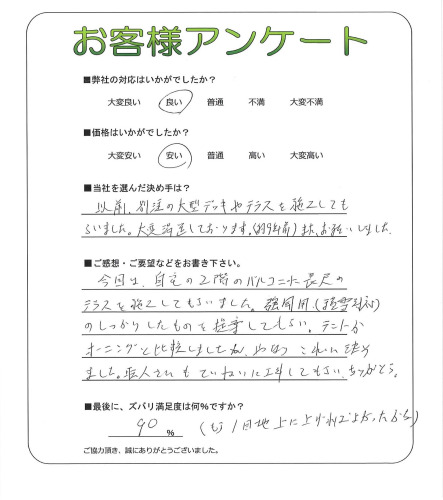 お客様アンケート
■弊社の対応はいかがでしたか?
大変良い 良い 普通 不満 大変不満
■価格はいかがでしたか?
大変安い 安い 普通 高い 大変高い
■当社を選んだ決め手は?
以前、別注の大型デッキやテラスを施工しても
らいました。大変満足しております。(約9年前)また、お願いしました。
■ご感想・ご要望などをお書き下さい。
今回は、自宅の2階のバルコニーに長尺の
テラスを施工してもらいました。強風用(積雪対応)
のしっかりしたものを提案してもらい、テントか
オーニングと比較しましたが、やはりこれに決め
ました。職人さんもていねいに工事してもらい、ありがとう。
■最後に、ズバリ満足度は何%ですか?
90 % (もう1回地上に上げればよかったから)
ご協力頂き、誠にありがとうございました。